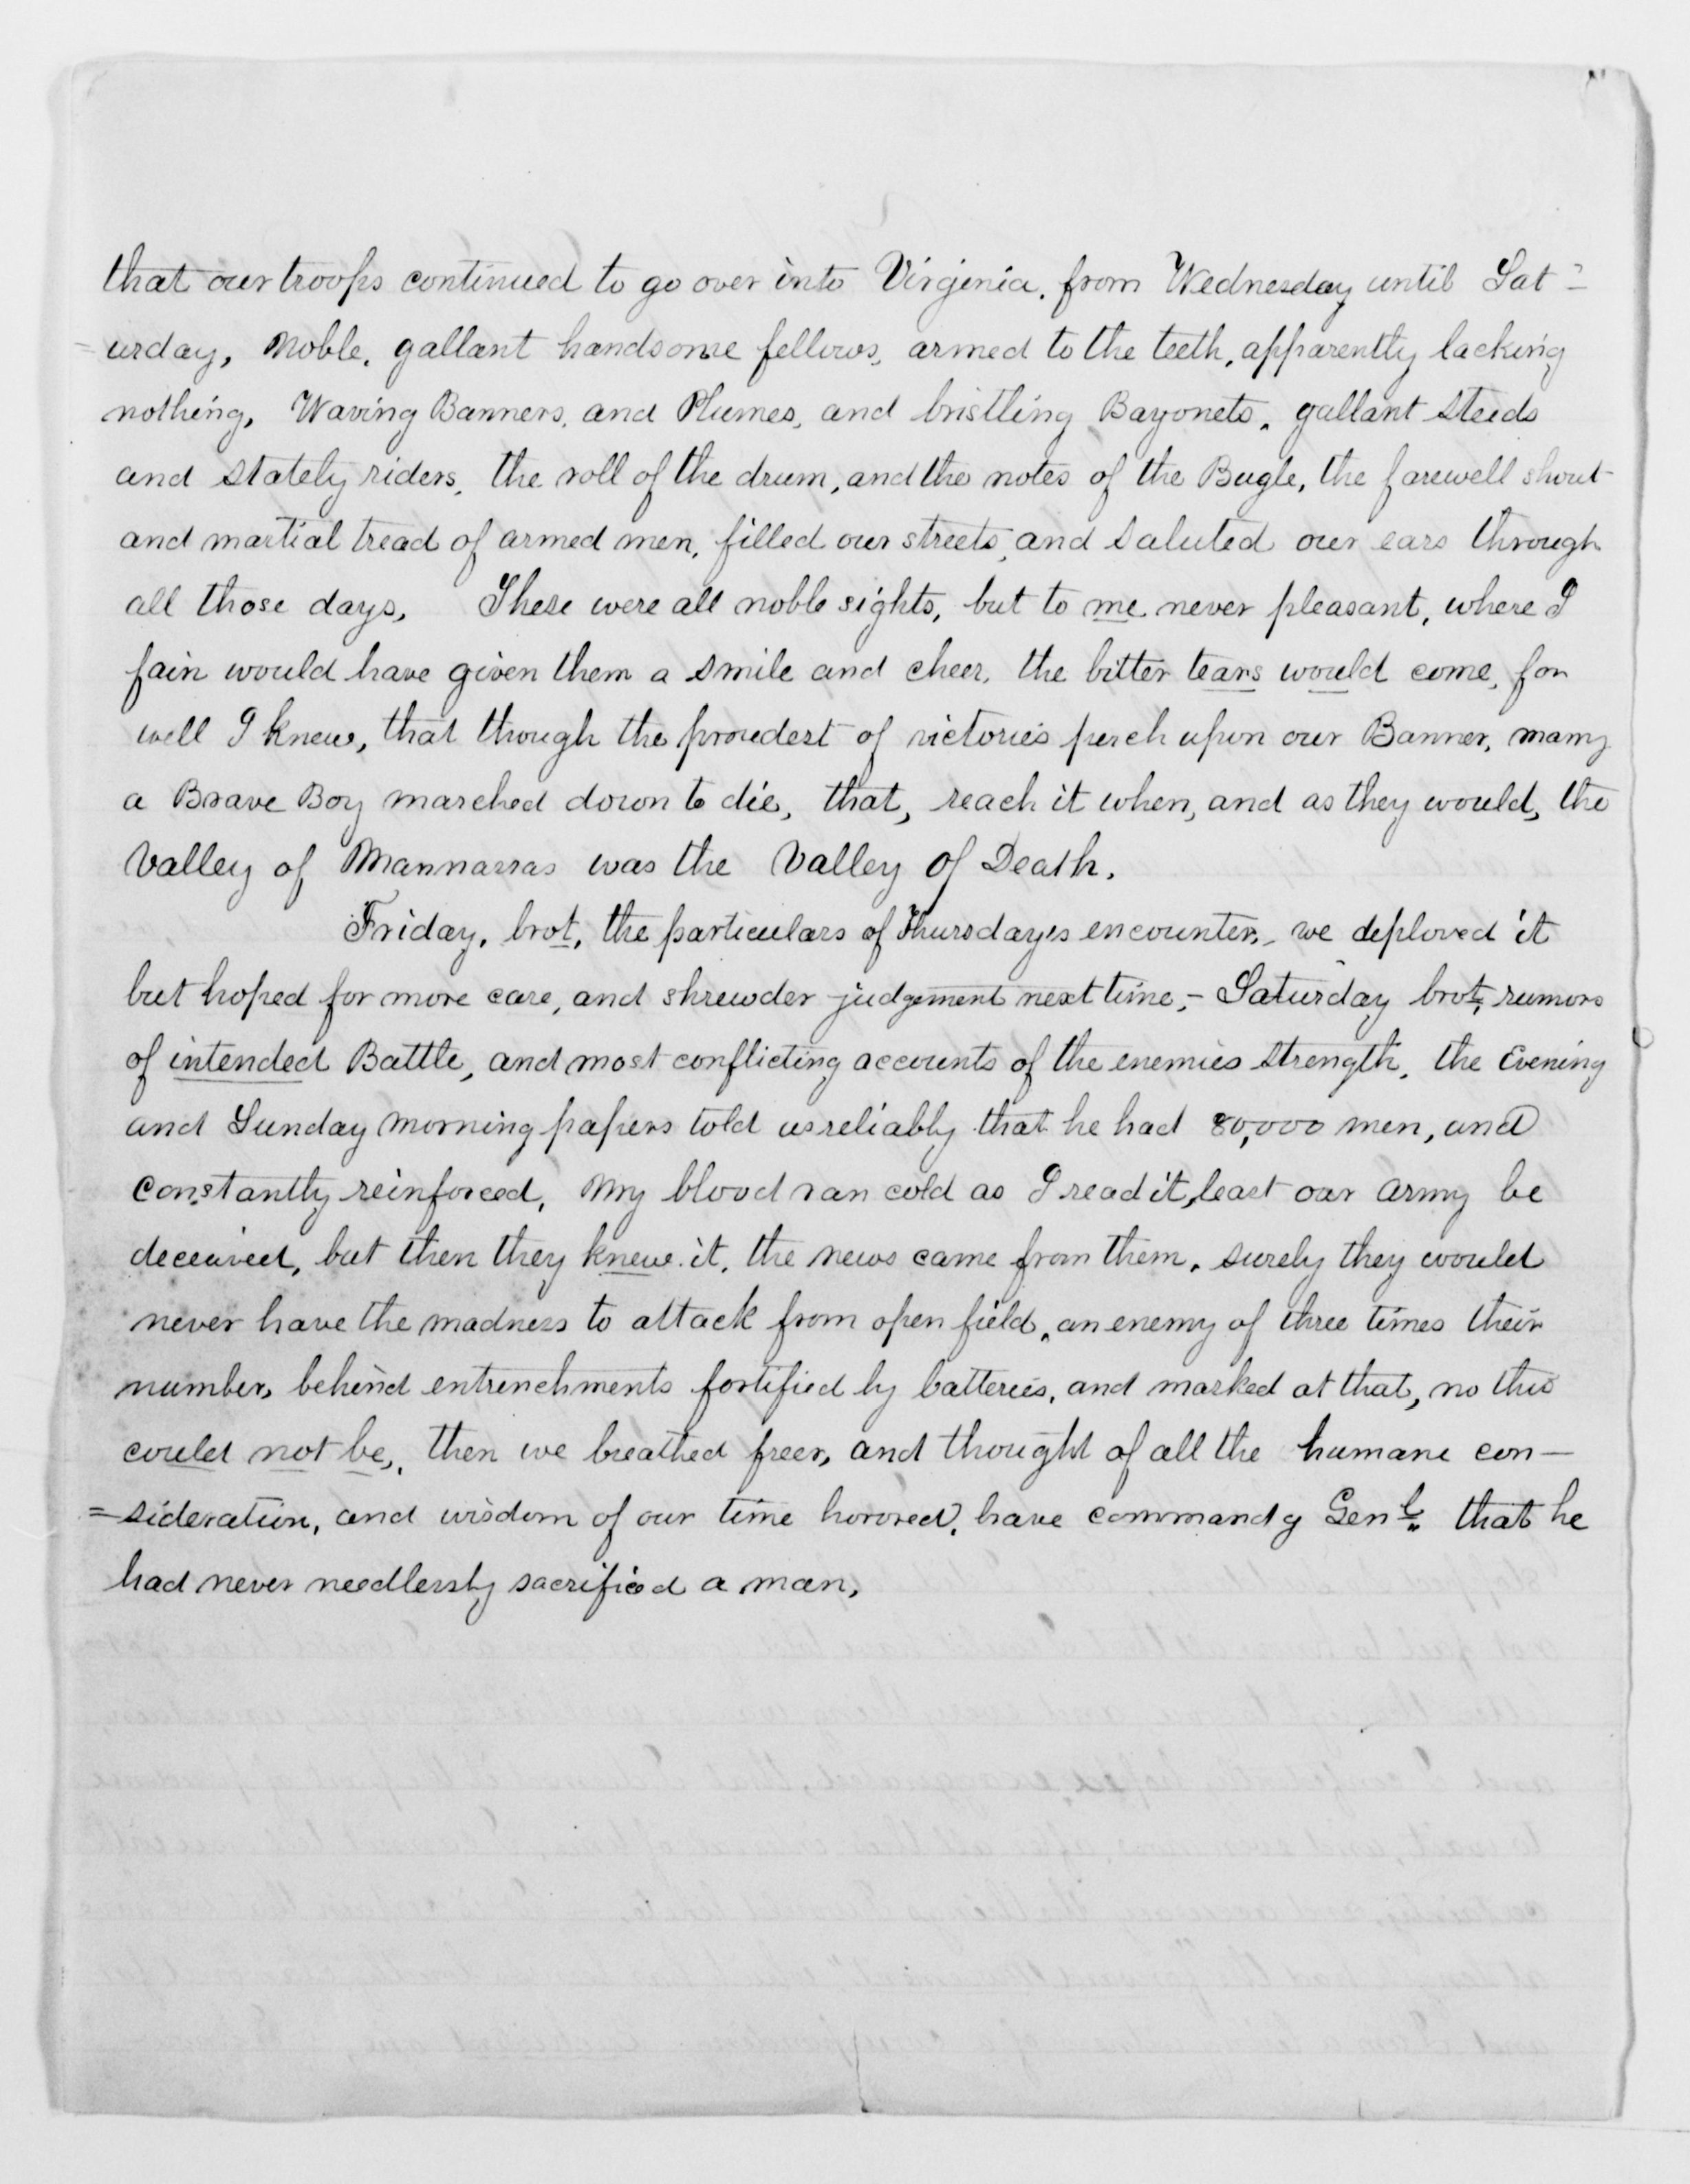 that our troops continued to go over into Virginia. from Wednesday until Sat-
=urday, noble, gallant handsome fellows, armed to the teeth, apparently lacking
nothing, Waving Banners, and Plumes, and bristling Bayonets, gallant steeds
and stately riders, the roll of the drum, and the notes of the Bugle, the farewell shout
and martial tread of armed men, filled our streets, and saluted our ears through
all those days, These were all noble sights, but to me never pleasant, where I
fain would have given them a smile and cheer, the bitter tears would come, for
well I knew, that though the proudest of victories perch upon our Banner, many
a Brave Boy marched down to die, that, reach it when, and as they would, the
Valley of Mannassas was the Valley of Death.
Friday, brot, the particulars of Thursdayes encounter,- we deplored it
but hoped for more care, and shrewder judgement next time,- Saturday brot, rumors
of intended Battle, and most conflicting accounts of the enemies strength, the Evening
and Sunday morning papers told us reliably that he had 80,000 men, and
constantly reinforced, My blood ran cold as I read it, least our army be
deceived, but then they knew it, the news came from them, surely they would
never have the madness to attack from open field, an enemy of three times their
number, behind entrenchments fortified by batteries, and masked at that, no this
could not be, then we breathed freer, and thought of all the humane con-
=sideration, and wisdom of our time honored, brave commandg Genl. that he
had never needlessly sacrificed a man,